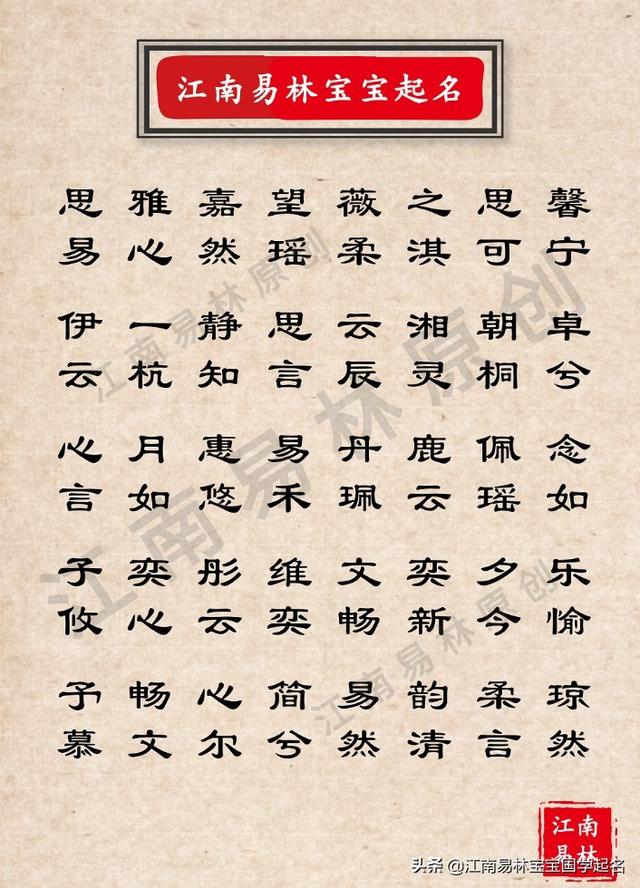 江南易林宝宝起名
思雅嘉望薇之思馨
易心然瑶柔淇可宁
伊一静思云湘朝卓
云杭知言辰灵桐兮
心月惠易丹鹿佩念
言如悠禾珮云瑶如
子奕彤维文奕夕乐
攸心云奕畅新今愉
予畅心简易韵柔琼
慕文尔兮然清言然
江南易林原创
江南易林原创
江南易林原创
江南
易林
头条 @江南易林宝宝国学起名